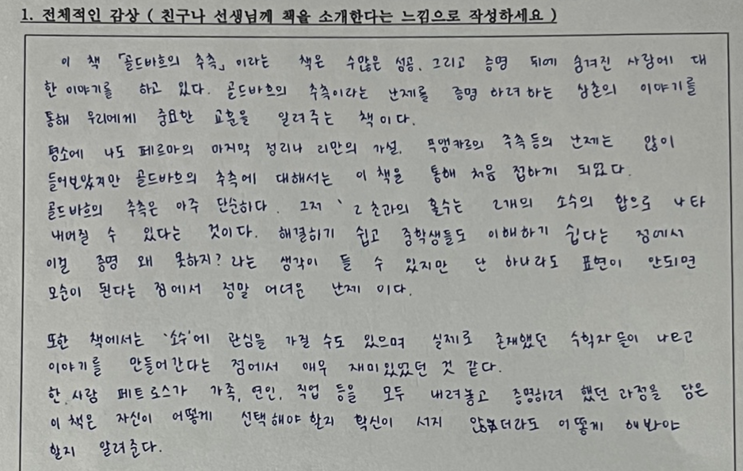 1. 전체적인 감상 ( 친구나 선생님께 책을 소개한다는 느낌으로 작성하세요 )
이 책 「골드바흐의 추측」 이라는 책은 수많은 성공, 그리고 증명 뒤에 숨겨진 사람에 대
한 이야기를 하고 있다. 골드바흐의 추측이라는 난제를 증명 하려 하는 삼촌의 이야기를
통해 우리에게 중요한 교훈을 알려주는 책이다.
평소에 나도 페르마의 마지막 정리나 리만의 가설, 푸앵카르의 추측 등의 난제는 많이
들어보았지만 골드바흐의 추측에 대해서는 이 책을 통해 처음 접하게 되었다.
골드바흐의 추측은 아주 단순하다. 그저 ' 2 초과의 홀수는 2개의 소수의 합으로 나타
내어질 수 있다는 것이다. 해결하기 쉽고 중학생들도 이해하기 쉽다는 점에서
이걸 증명 왜 못하지? 라는 생각이 들 수 있지만 단 하나라도 표현이 안되면
모순이 된다는 점에서 정말 어려운 난제 이다.
또한 책에서는 '소수'에 관심을 가질 수도 있으며 실제로 존재했던 수학자들이 나오고
이야기를 만들어간다는 점에서 매우 재미있었던 것 같다.
한 사람 페트로스가 가족, 연인, 직업 등을 모두 내려놓고 증명하려 했던 과정을 담은
이 책은 자신이 어떻게 선택해야 할지 확신이 서지 않더라도 어떻게 해봐야
할지 알려준다.